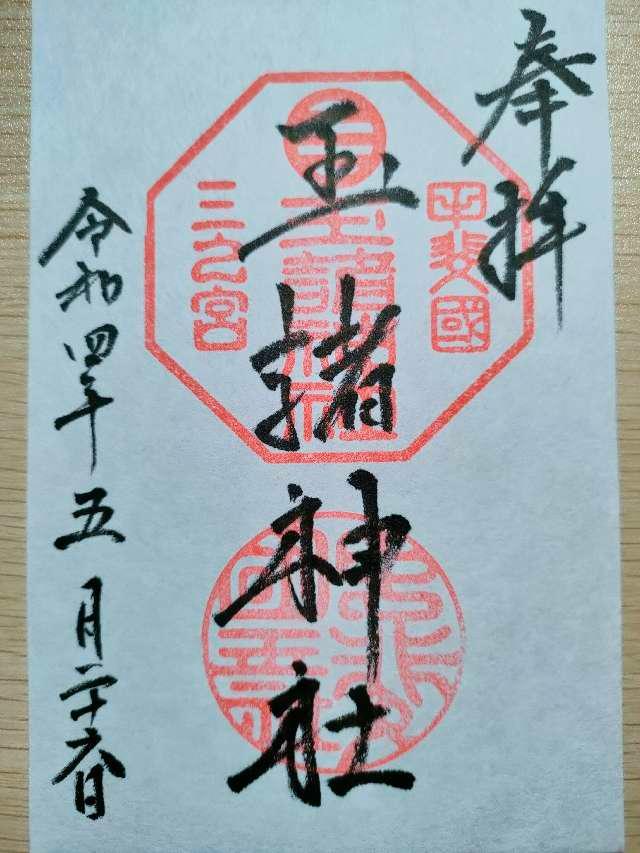 奉拝
甲斐國
玉諸神社
三之宮
玉諸神社
令和四年五月二十六日